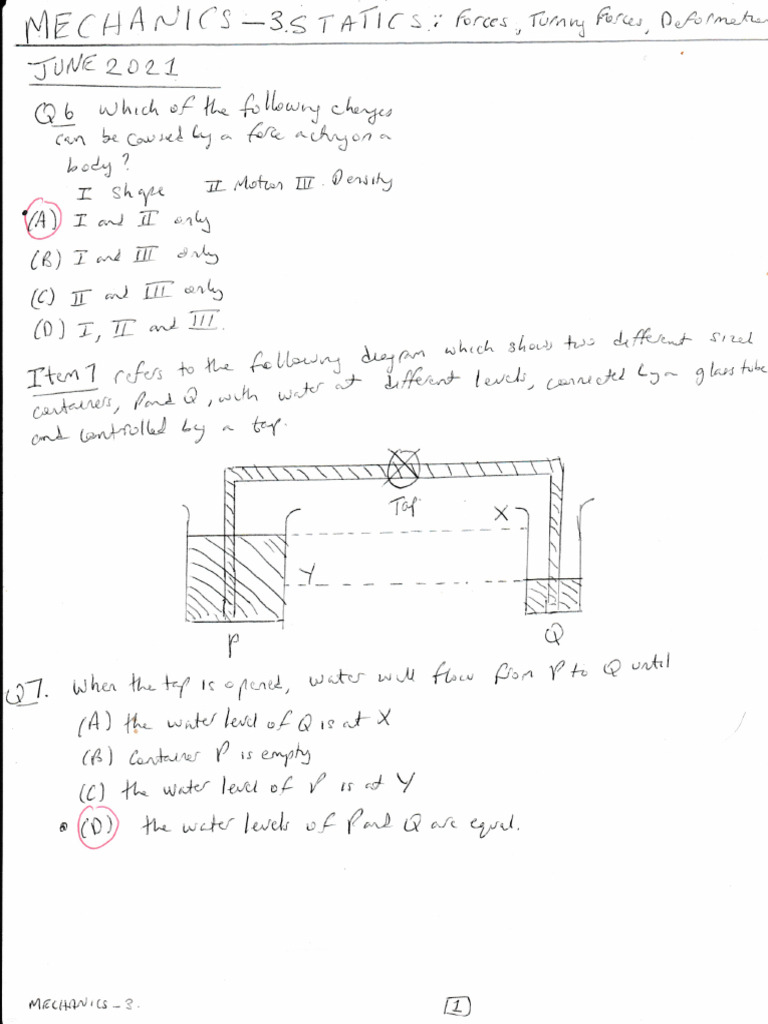 MECHANICS - 3. STATICS: Forces, Turning Forces, Deformation
JUNE 2021
Q6 Which of the following changes
can be caused by a force acting on a
body?
I Shape II Motion III. Density
(A) I and II only
(B) I and III only
(C) II and III only
(D) I, II and III.
Item 7 refers to the following diagram which shows two different sized
containers, P and Q, with water at different levels, connected by a glass tube
and controlled by a tap.
Tap
X
Y
P
Q
Q7. When the tap is opened, water will flow from P to Q until
(A) the water level of Q is at X
(B) Container P is empty
(C) the water level of P is at Y
(D) the water levels of P and Q are equal.
MECHANICS - 3.
1